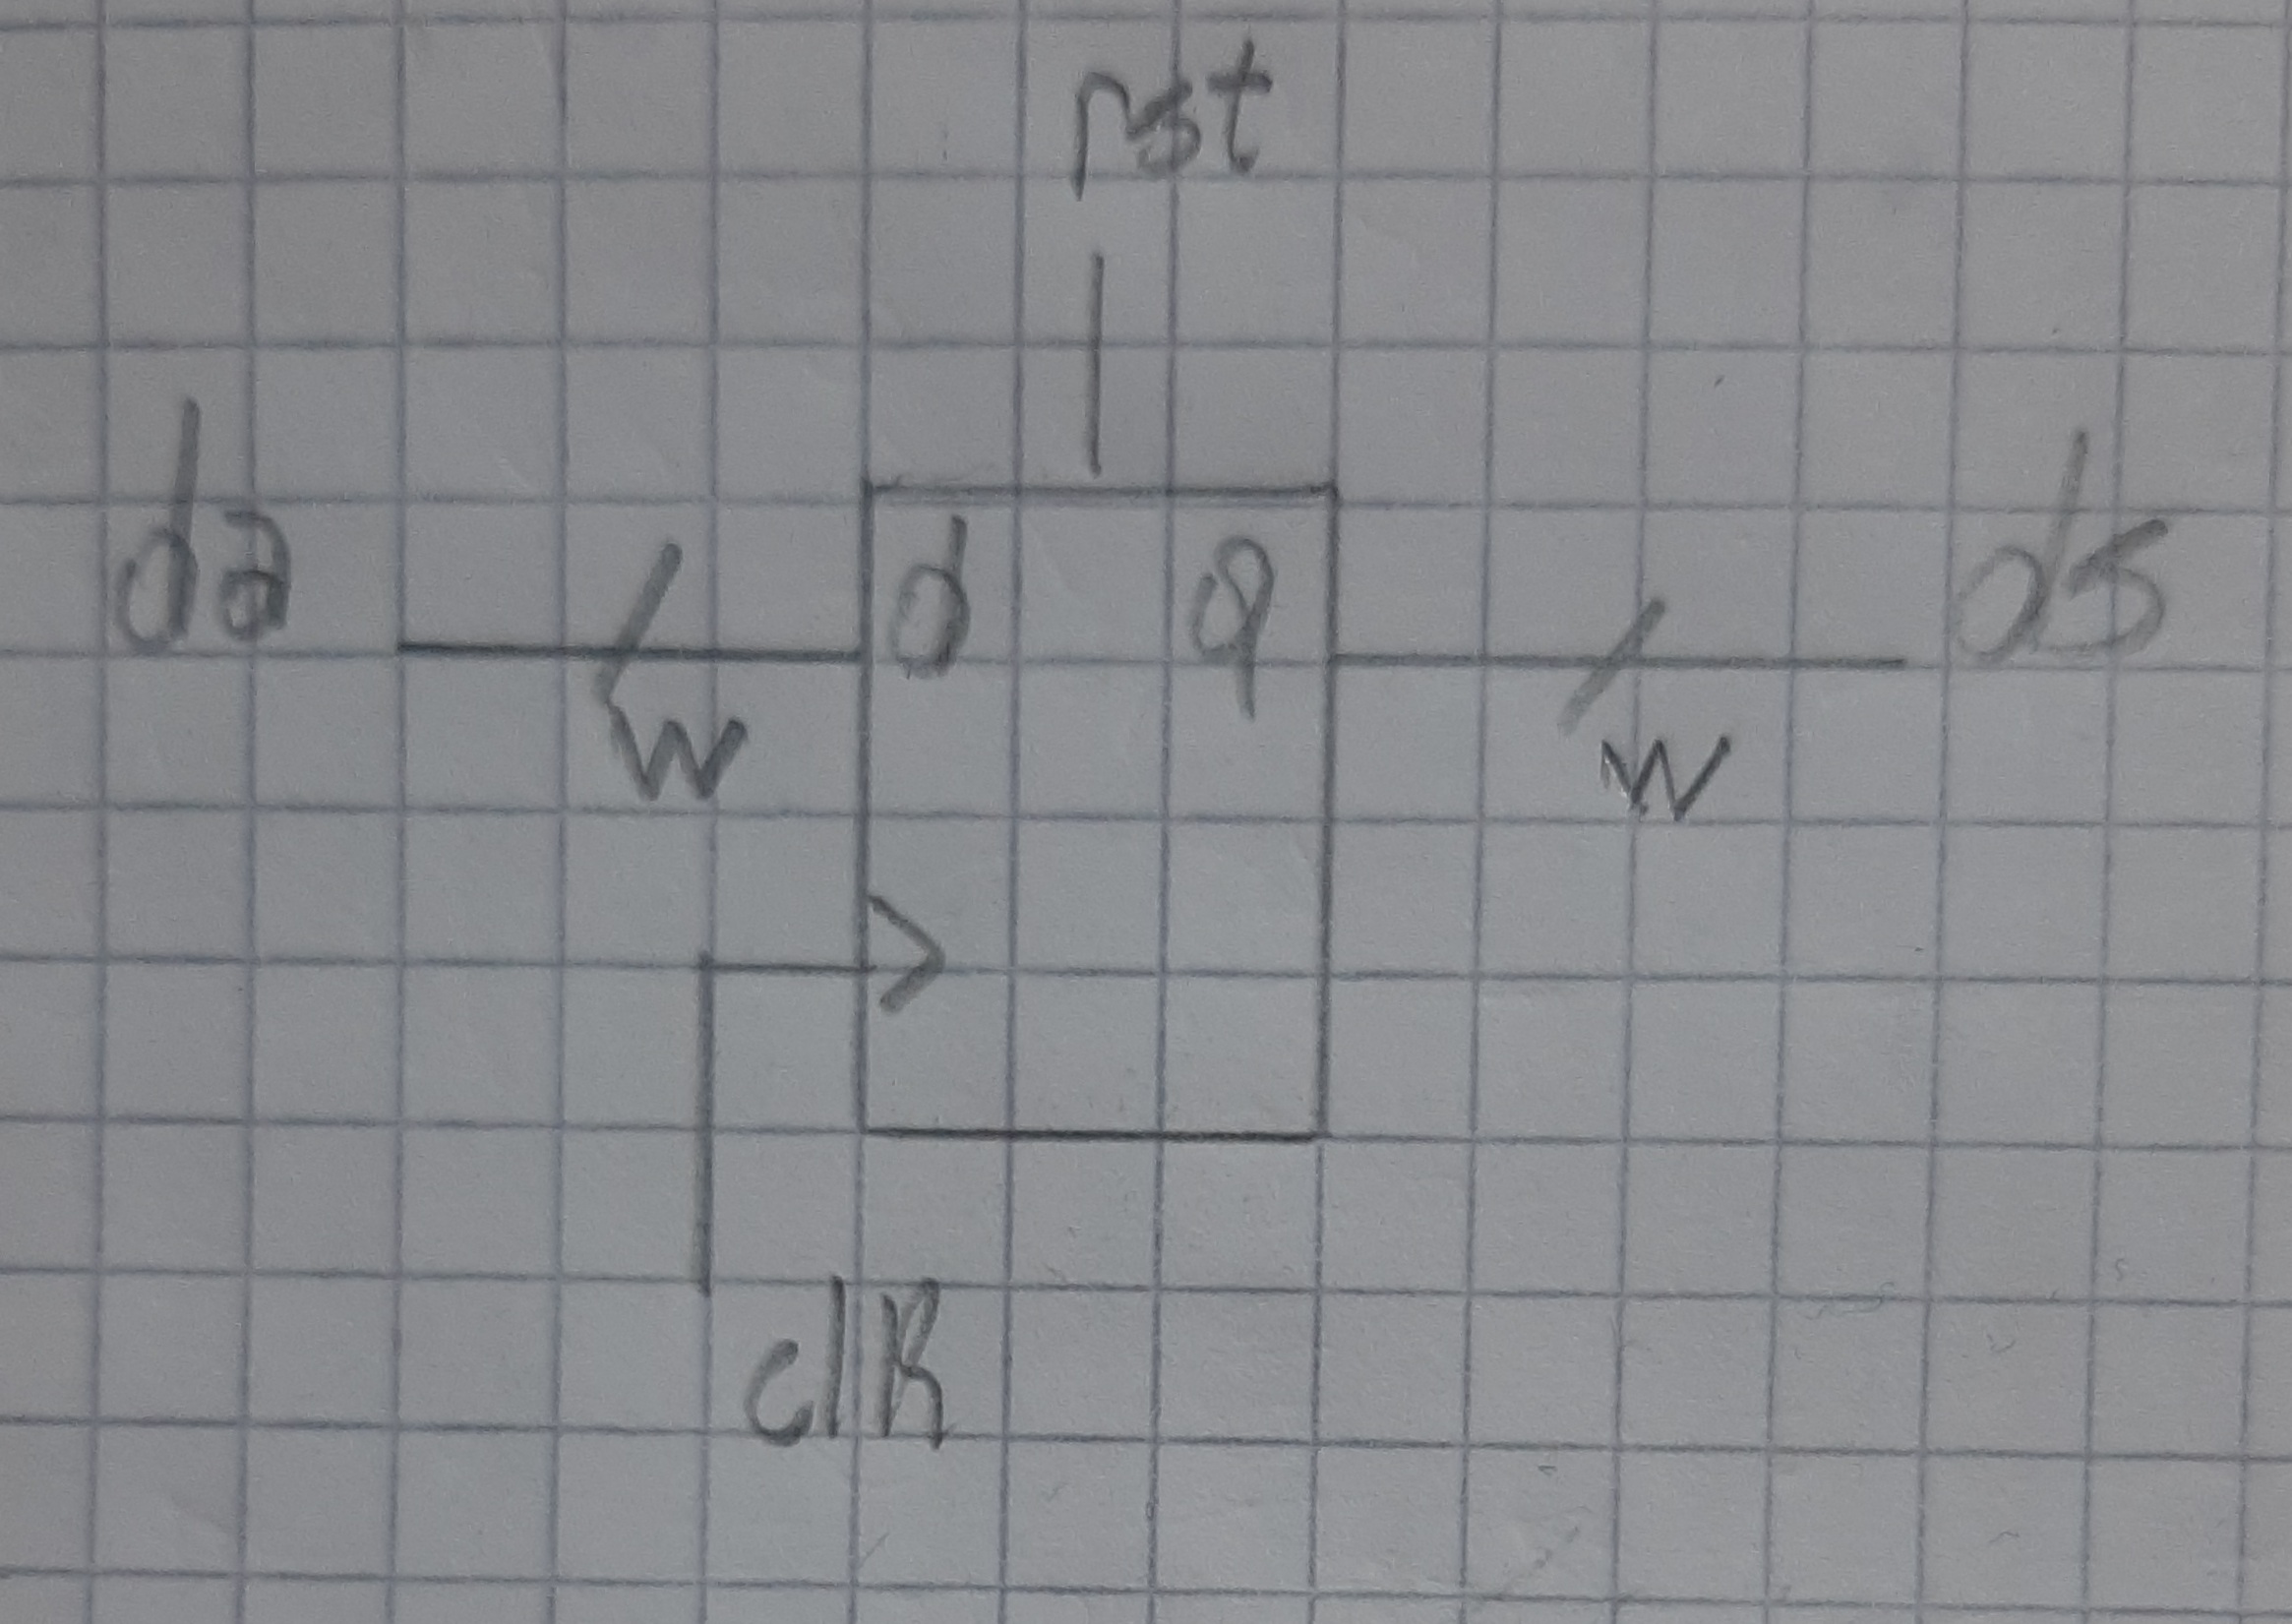 rst
da d q ds
w w
clk